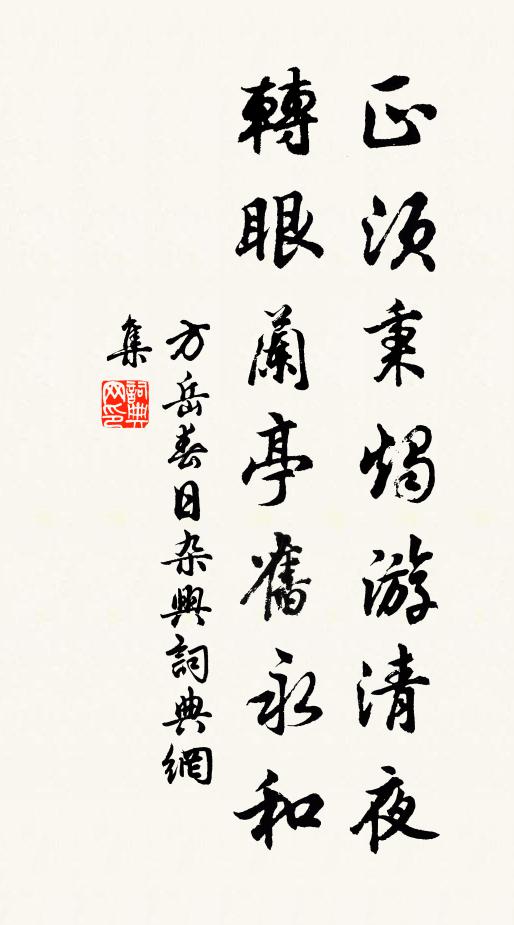 正須秉燭游清夜
轉眼蘭亭舊永和
方岳春日杂興詞典網
集
詞典
网印